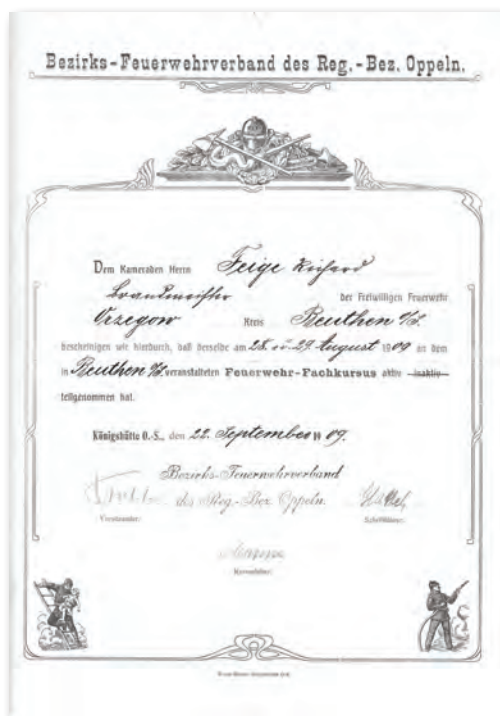 Bezirks-Feuerwehrverband des Reg.-Bez. Oppeln.
Dem Kameraden Herrn Feige Richard
Brandmeister der Freiwilligen Feuerwehr
Orzegow Kreis Beuthen O/S.
bescheinigen wir hierdurch, daß derselbe am 28. u. 29. August 1909 an dem
in Beuthen O/S. veranstalteten Feuerwehr-Fachkursus aktiv inaktiv
teilgenommen hat.
Königshütte O.-S., den 22. September 1909.
Bezirks-Feuerwehrverband
des Reg.-Bez. Oppeln.
Vorsitzender: Schriftführer:
Kassenführer: